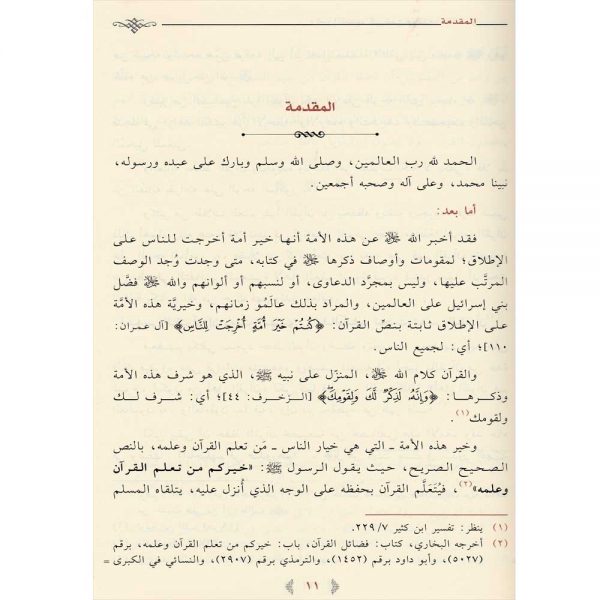 المقدمة
المقدمة
الحمد لله رب العالمين، وصلى الله وسلم وبارك على عبده ورسوله،
نبينا محمد، وعلى آله وصحبه أجمعين.
أما بعد:
فقد أخبر الله ﷻ عن هذه الأمة أنها خير أمة أخرجت للناس على
الإطلاق؛ لمقومات وأوصاف ذكرها ﷻ في كتابه، متى وجدت وُجد الوصف
المرتَّب عليها، وليس بمجرَّد الدعاوى، أو لنسبهم أو ألوانهم والله ﷻ فضَّل
بني إسرائيل على العالمين، والمراد بذلك عالَمُو زمانهم، وخيريَّة هذه الأمَّة
على الإطلاق ثابتة بنصِّ القرآن: ﴿كُنتُمْ خَيْرَ أُمَّةٍ أُخْرِجَتْ لِلنَّاسِ﴾ [آل عمران:
١١٠]؛ أي: لجميع الناس.
والقرآن كلام الله ﷻ، المنزّل على نبيه ﷺ، الذي هو شرف هذه الأمة
وذكرها: ﴿وَإِنَّهُ لَذِكْرٌ لَّكَ وَلِقَوْمِكَ﴾ [الزّخرف: ٤٤]؛ أي: شرف لك
ولقومك(١).
وخير هذه الأمة ـ التي هي خيار الناس ـ مَن تعلم القرآن وعلمه، بالنص
الصحيح الصريح، حيث يقول الرسول ﷺ: «خيركم من تعلم القرآن
وعلمه»(٢)، فيُتَعلَّم القرآن بحفظه على الوجه الذي أُنزل عليه، يتلقاه المسلم
(١) ينظر: تفسير ابن كثير ٢٢٩/٧.
(٢) أخرجه البخاري، كتاب: فضائل القرآن، باب: خيركم من تعلم القرآن وعلمه، برقم
(٥٠٢٧)، وأبو داود برقم (١٤٥٢)، والترمذي برقم (٢٩٠٧)، والنسائي في الكبرى =
١١